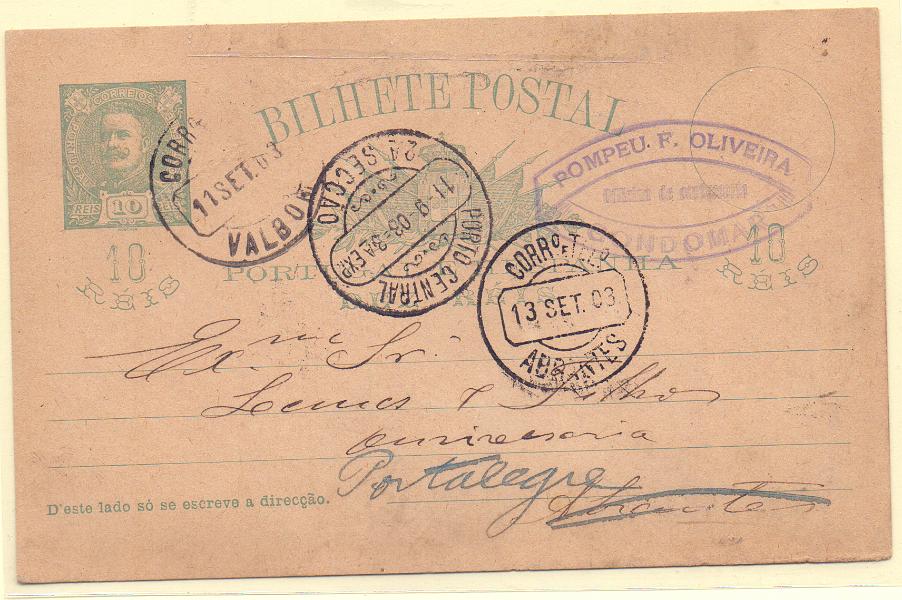 BILHETE POSTAL
CORREIOS
PORTUGAL
REIS 10
10
RÉIS
10
RÉIS
CORR
11 SET. 03
VALBOM
2A SECÇÃO
11-9-03-3A EXP.
PORTO CENTRAL
POMPEU. F. OLIVEIRA
Officina de
GONDOMAR
PORT
CORRO E TELO
13 SET. 03
ABRANTES
Exmo Sr.
Lemos & Filhos
ourivesaria
Portalegre
Abrantes
D'este lado só se escreve a direcção.